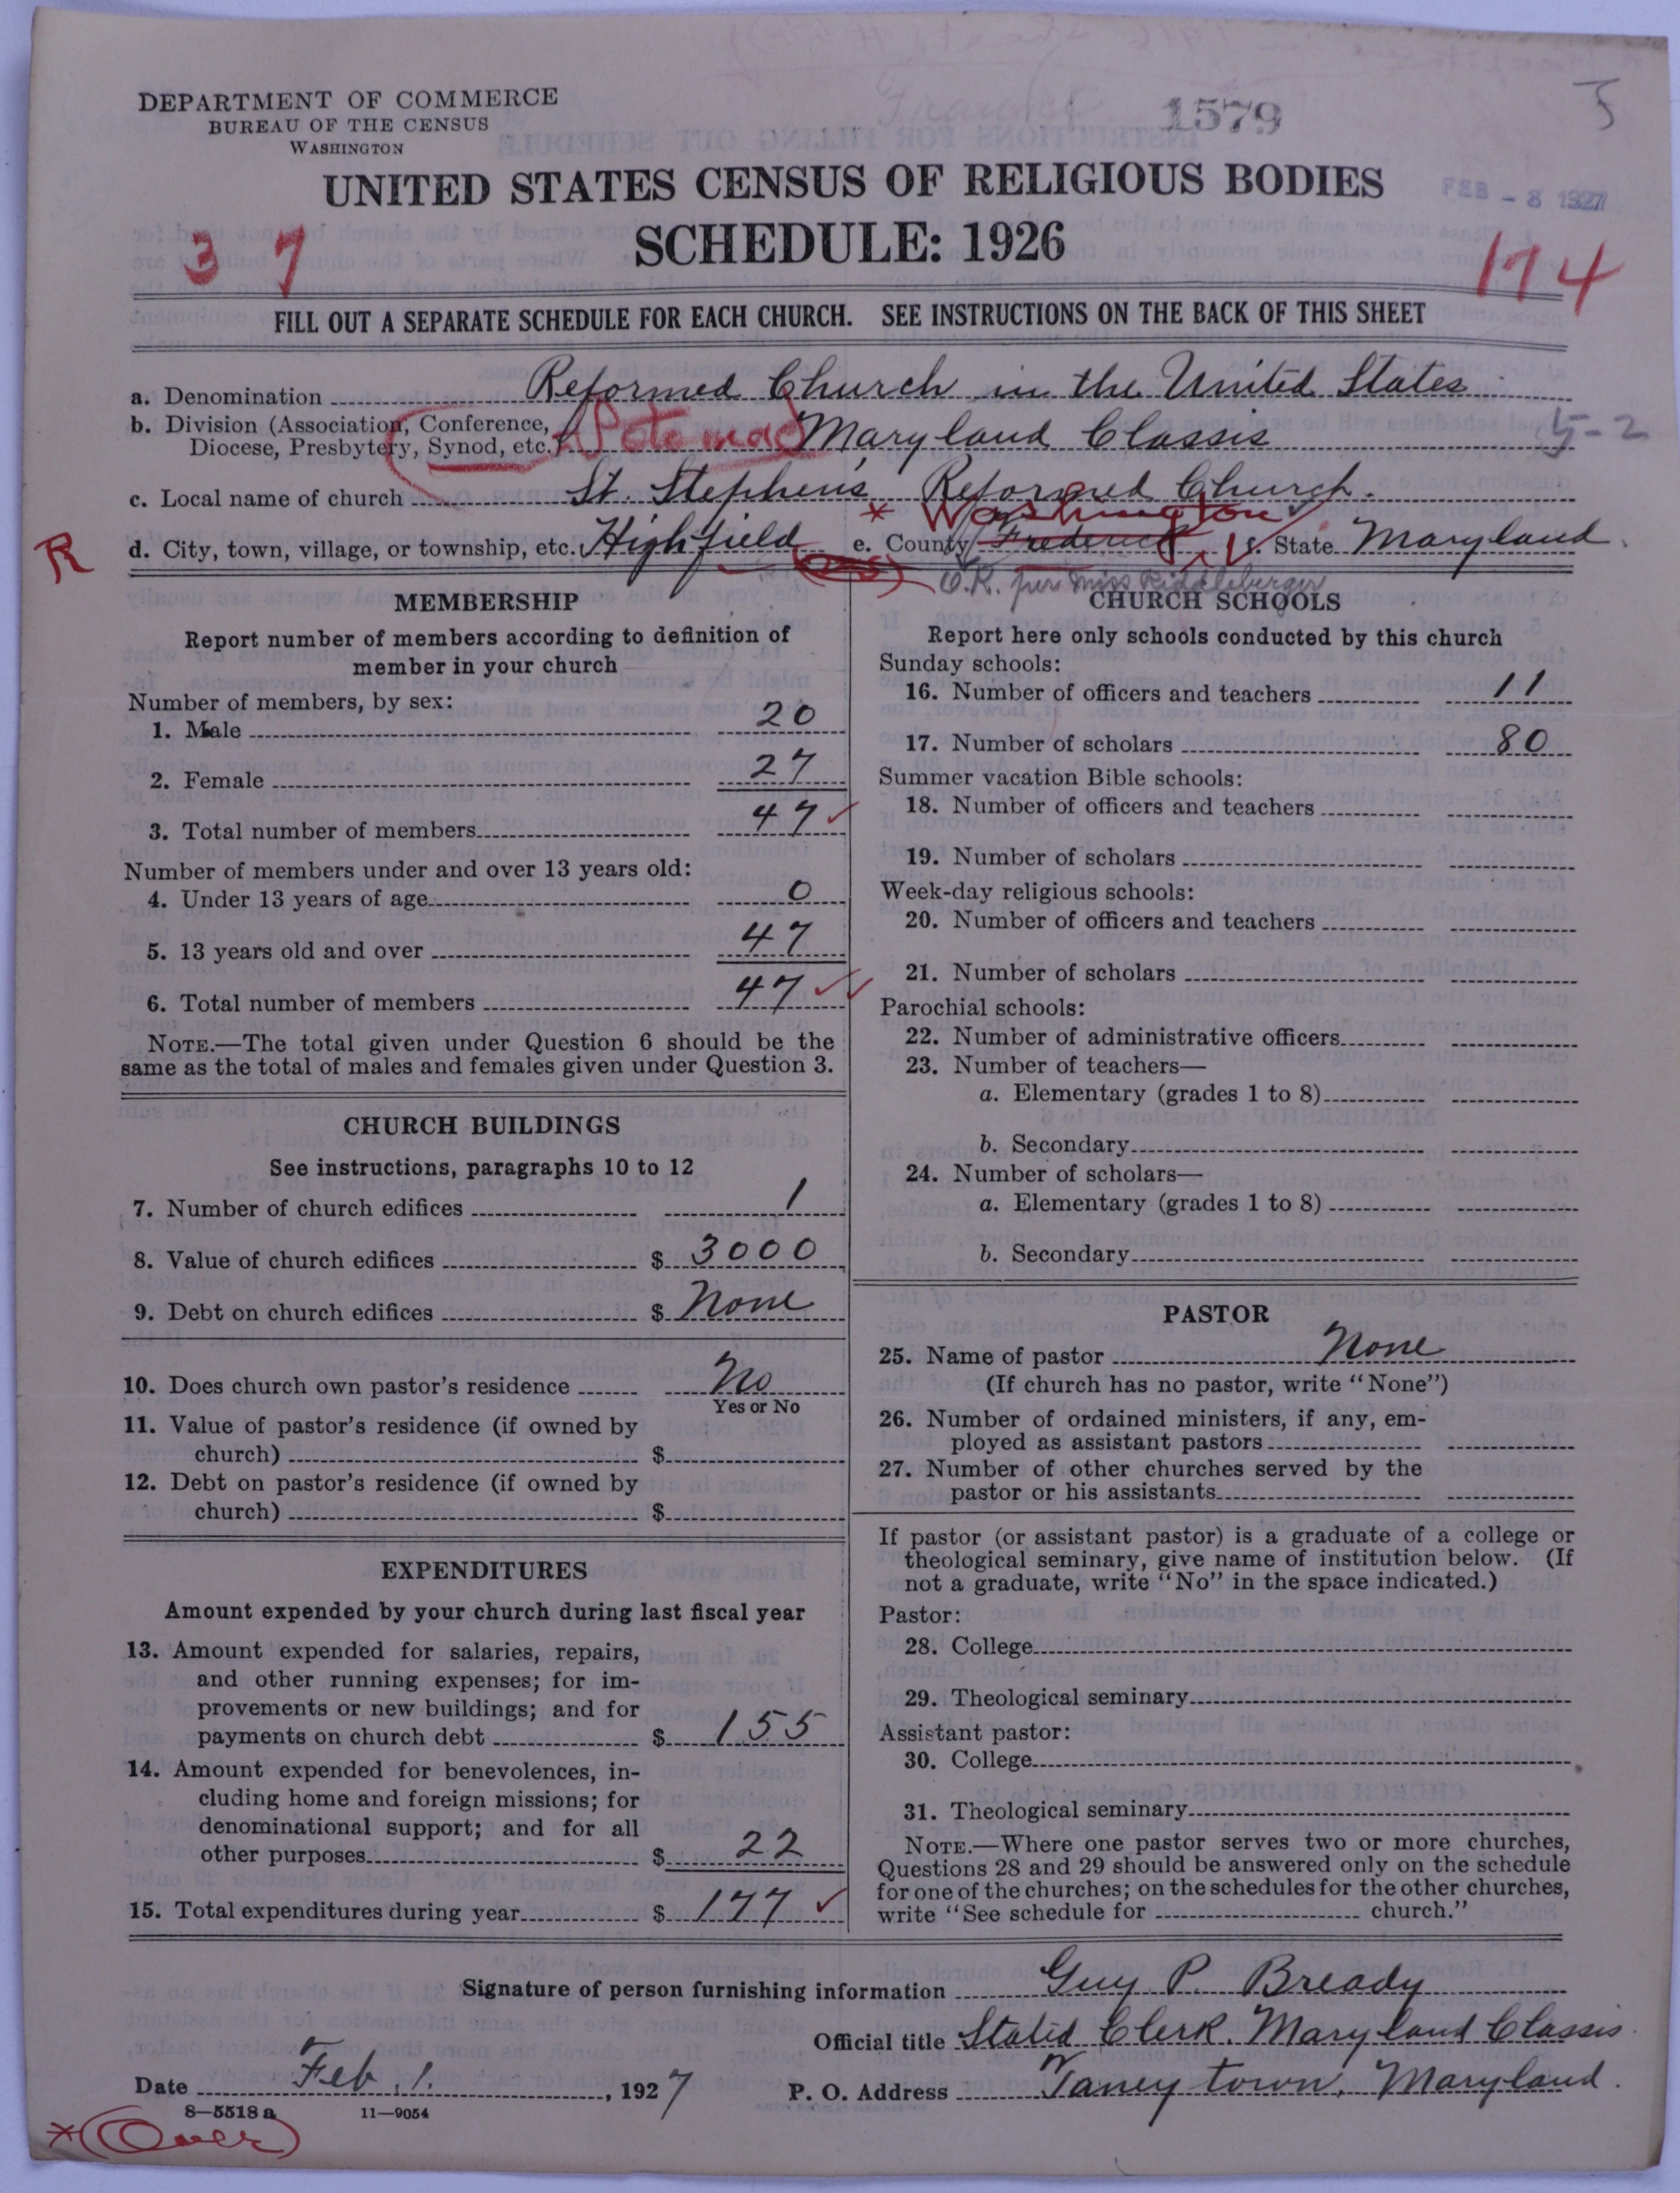 DEPARTMENT OF COMMERCE
BUREAU OF THE CENSUS
WASHINGTON
1579
UNITED STATES CENSUS OF RELIGIOUS BODIES
FEB - 8 1927
SCHEDULE: 1926
3 7
174
FILL OUT A SEPARATE SCHEDULE FOR EACH CHURCH. SEE INSTRUCTIONS ON THE BACK OF THIS SHEET
a. Denomination Reformed Church in the United States
b. Division (Association, Conference,
Diocese, Presbytery, Synod, etc.) Potomac Maryland Classis
5-2
c. Local name of church St. Stephen's Reformed Church.
* Washington
R
d. City, town, village, or township, etc. Highfield e. County Frederick f. State Maryland.
O.K. per Miss Riddleberger
MEMBERSHIP
Report number of members according to definition of
member in your church
Number of members, by sex:
1. Male 20
2. Female 27
3. Total number of members 47
Number of members under and over 13 years old:
4. Under 13 years of age 0
5. 13 years old and over 47
6. Total number of members 47
NOTE.—The total given under Question 6 should be the
same as the total of males and females given under Question 3.
CHURCH BUILDINGS
See instructions, paragraphs 10 to 12
7. Number of church edifices 1
8. Value of church edifices $ 3000
9. Debt on church edifices $ None
10. Does church own pastor's residence No
Yes or No
11. Value of pastor's residence (if owned by
church) $
12. Debt on pastor's residence (if owned by
church) $
EXPENDITURES
Amount expended by your church during last fiscal year
13. Amount expended for salaries, repairs,
and other running expenses; for im-
provements or new buildings; and for
payments on church debt $ 155
14. Amount expended for benevolences, in-
cluding home and foreign missions; for
denominational support; and for all
other purposes $ 22
15. Total expenditures during year $ 177
CHURCH SCHOOLS
Report here only schools conducted by this church
Sunday schools:
16. Number of officers and teachers 11
17. Number of scholars 80
Summer vacation Bible schools:
18. Number of officers and teachers
19. Number of scholars
Week-day religious schools:
20. Number of officers and teachers
21. Number of scholars
Parochial schools:
22. Number of administrative officers
23. Number of teachers—
a. Elementary (grades 1 to 8)
b. Secondary
24. Number of scholars—
a. Elementary (grades 1 to 8)
b. Secondary
PASTOR
25. Name of pastor None
(If church has no pastor, write "None")
26. Number of ordained ministers, if any, em-
ployed as assistant pastors
27. Number of other churches served by the
pastor or his assistants
If pastor (or assistant pastor) is a graduate of a college or
theological seminary, give name of institution below. (If
not a graduate, write "No" in the space indicated.)
Pastor:
28. College
29. Theological seminary
Assistant pastor:
30. College
31. Theological seminary
NOTE.—Where one pastor serves two or more churches,
Questions 28 and 29 should be answered only on the schedule
for one of the churches; on the schedules for the other churches,
write "See schedule for church."
Signature of person furnishing information Guy P. Bready
Official title Stated Clerk. Maryland Classis
Date Feb. 1. , 1927
P. O. Address Taneytown, Maryland.
8—5518 a 11—9054
* (Over)